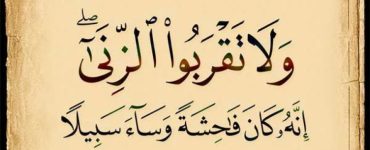 وَلَا تَقْرَبُوا۟ ٱلزِّنَىٰٓ ۖ
إِنَّهُۥ كَانَ فَٰحِشَةً وَسَآءَ سَبِيلًا